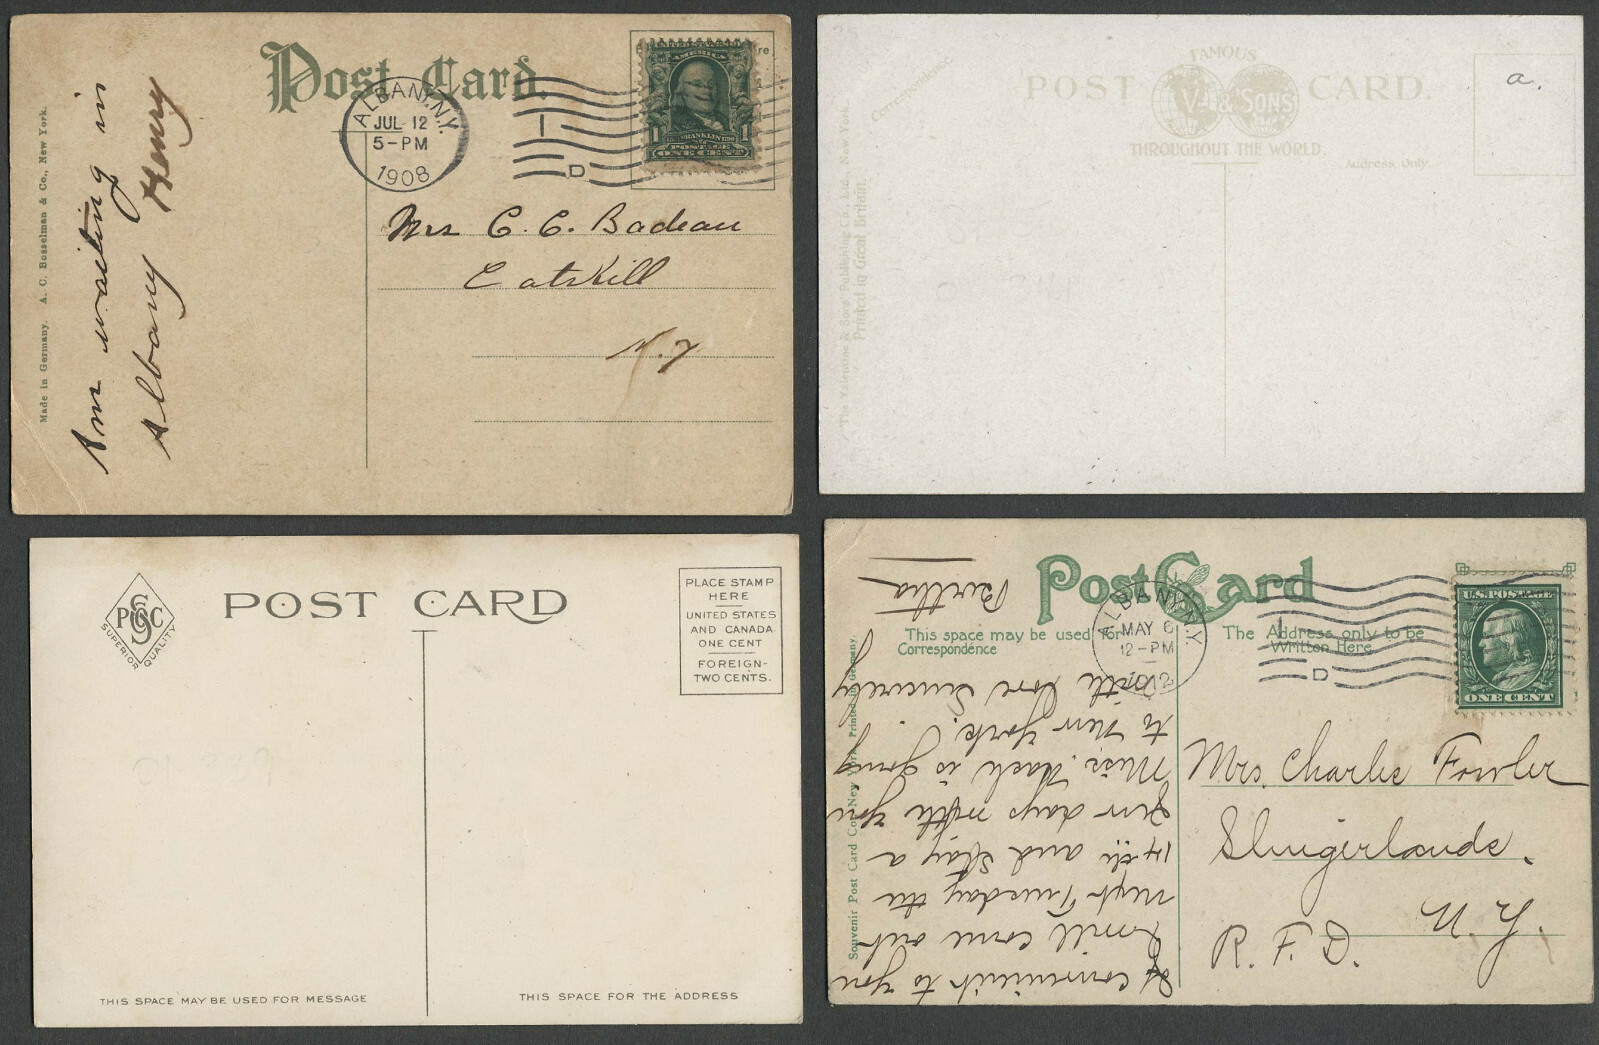 Post Card.
Made in Germany. A. C. Bosselman & Co., New York.
Am waiting in
Albany Henry
ALBANY, N.Y.
JUL 12
5-PM
1908
D
UNITED STATES OF AMERICA
1 FRANKLIN 1
POSTAGE
ONE CENT
re
Mrs C. C. Badeau
Catskill
N.Y
Correspondence.
POST CARD.
FAMOUS
V. & SONS
THROUGHOUT THE WORLD
Address Only.
a.
The Valentine & Sons' Publishing Co., Ltd., New York.
Printed in Great Britain.
PSCC
SUPERIOR QUALITY
POST CARD
PLACE STAMP
HERE
UNITED STATES
AND CANADA
ONE CENT
FOREIGN-
TWO CENTS.
THIS SPACE MAY BE USED FOR MESSAGE
THIS SPACE FOR THE ADDRESS
Post Card
This space may be used for
Correspondence
The Address only to be
Written Here
Souvenir Post Card Co. New York. Printed in Germany.
ALBANY, N.Y.
MAY 6
12-PM
1912
D
U.S. POSTAGE
ONE CENT
If convenient to you
I will come out
next Tuesday the
14th and stay a
few days with you
Miss. Mack is going
to New York.
With love Sincerely
Bertha
Mrs. Charlie Fowler
Slingerlands.
N. Y.
R. F. D.